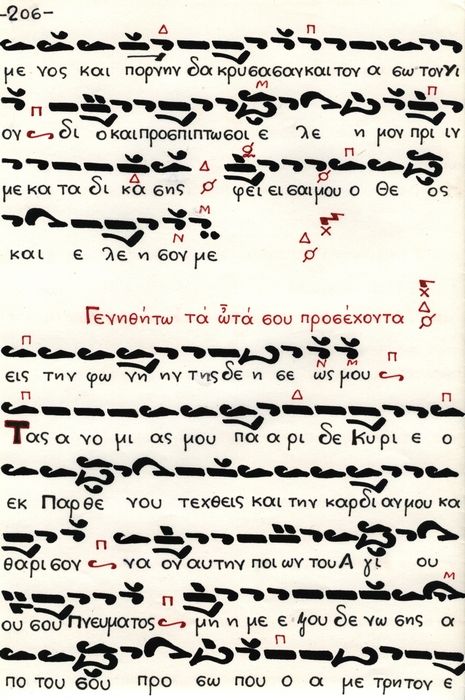 -206-
με νος και πορνην δα κρυσασαν και τον α σω τον γι
ον δι ο και προσπιπτω σοι ε λε η μον πρι ιν
με κα τα δι κα σης φει ει σαι μου ο Θε ος
και ε λε η σον με
Γενηθήτω τά ὦτά σου προσέχοντα
εις την φω νη ην της δε η σε ως μου
Τας α νο μι ας μου πα α ρι δε Κυ ρι ε ο
εκ Παρ θε νου τεχθεις και την καρδι αν μου κα
θαρισον να ον αυτην ποι ων του Α γι ου
ου σου Πνευματος μη η με ε ξου δε νω σης α
πο του σου προ σω που ο α με τρητον ε